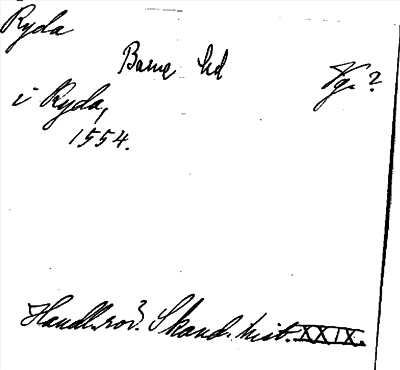 Ryda
Barne hd Vg. ?
i Ryda,
1554.
Handl. rör. Skand. hist. XXIX.